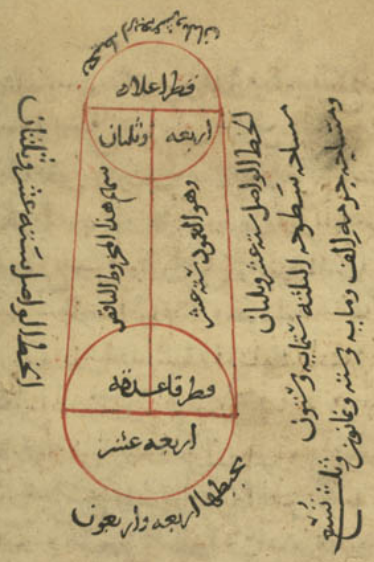 محيطها اربعه عشر وثلثان
قطر اعلاه
اربعه وثلثان
سهم هذا المخروط الناقص
وهو العمود سته عشر
قطر قاعدته
اربعه عشر
محيطها اربعه واربعون
الخط الواصل سته عشر وثلثان
الخط الواصل سته عشر وثلثان
مساحه سطوحه الثلثه ستمايه وستون
ومساحه جرمه الف ومايه وسته وثمانون وثلث تسع